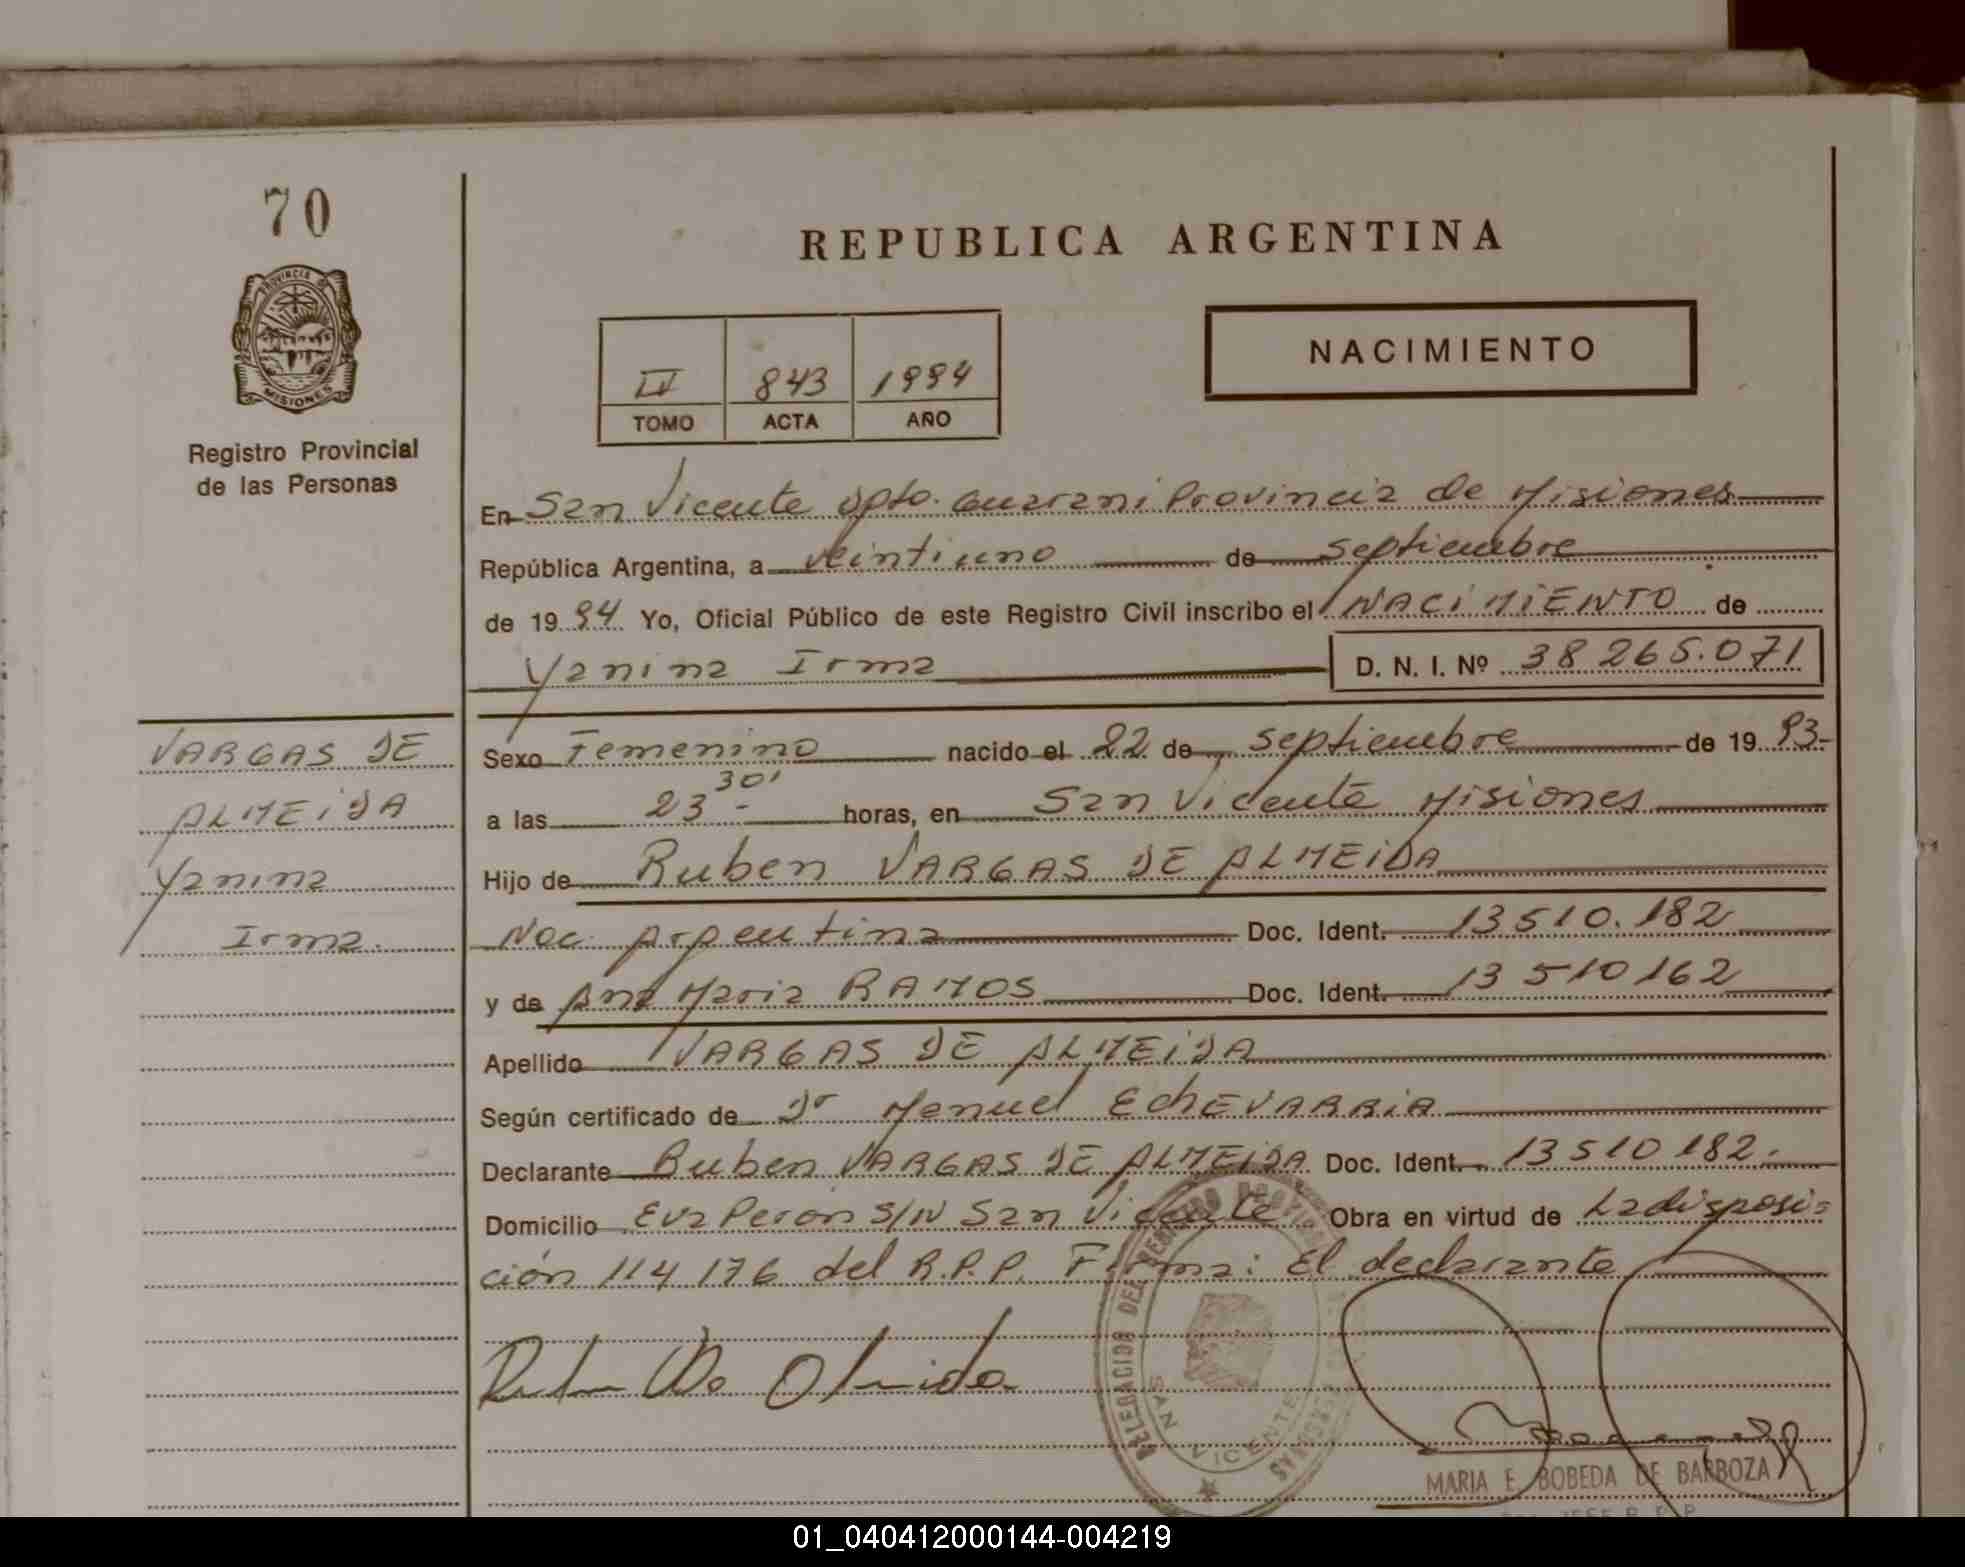 70
REPUBLICA ARGENTINA
PROVINCIA DE
MISIONES
Registro Provincial
de las Personas
NACIMIENTO
IV 843 1994
TOMO ACTA AÑO
En San Vicente Dpto. Guarani Provincia de Misiones
República Argentina, a veintiuno de septiembre
de 1994 Yo, Oficial Público de este Registro Civil inscribo el NACIMIENTO de
Yanina Irma D. N. I. Nº 38265.071
VARGAS DE
ALMEIDA
Yanina
Irma.
Sexo Femenino nacido el 22 de septiembre de 1993-
a las 23 30' horas, en San Vicente Misiones
Hijo de Ruben VARGAS DE ALMEIDA
Nac. Argentina Doc. Ident. 13510.182
y de Ana Maria RAMOS Doc. Ident. 13 510 162
Apellido VARGAS DE ALMEIDA
Según certificado de Dr Manuel EchEVARRiA
Declarante Ruben VARGAS DE ALMEIDA Doc. Ident. 13510182.
Domicilio Eva Perón S/N San Vicente Obra en virtud de La disposi=
ción 114/76 del R.P.P. Firma: El declarante
DELEGACION DEL REGISTRO PROVINCIAL DE LAS PERSONAS
SAN VICENTE
MARIA E. BOBEDA DE BARBOZA
JEFE R. P. P.
01_040412000144-004219